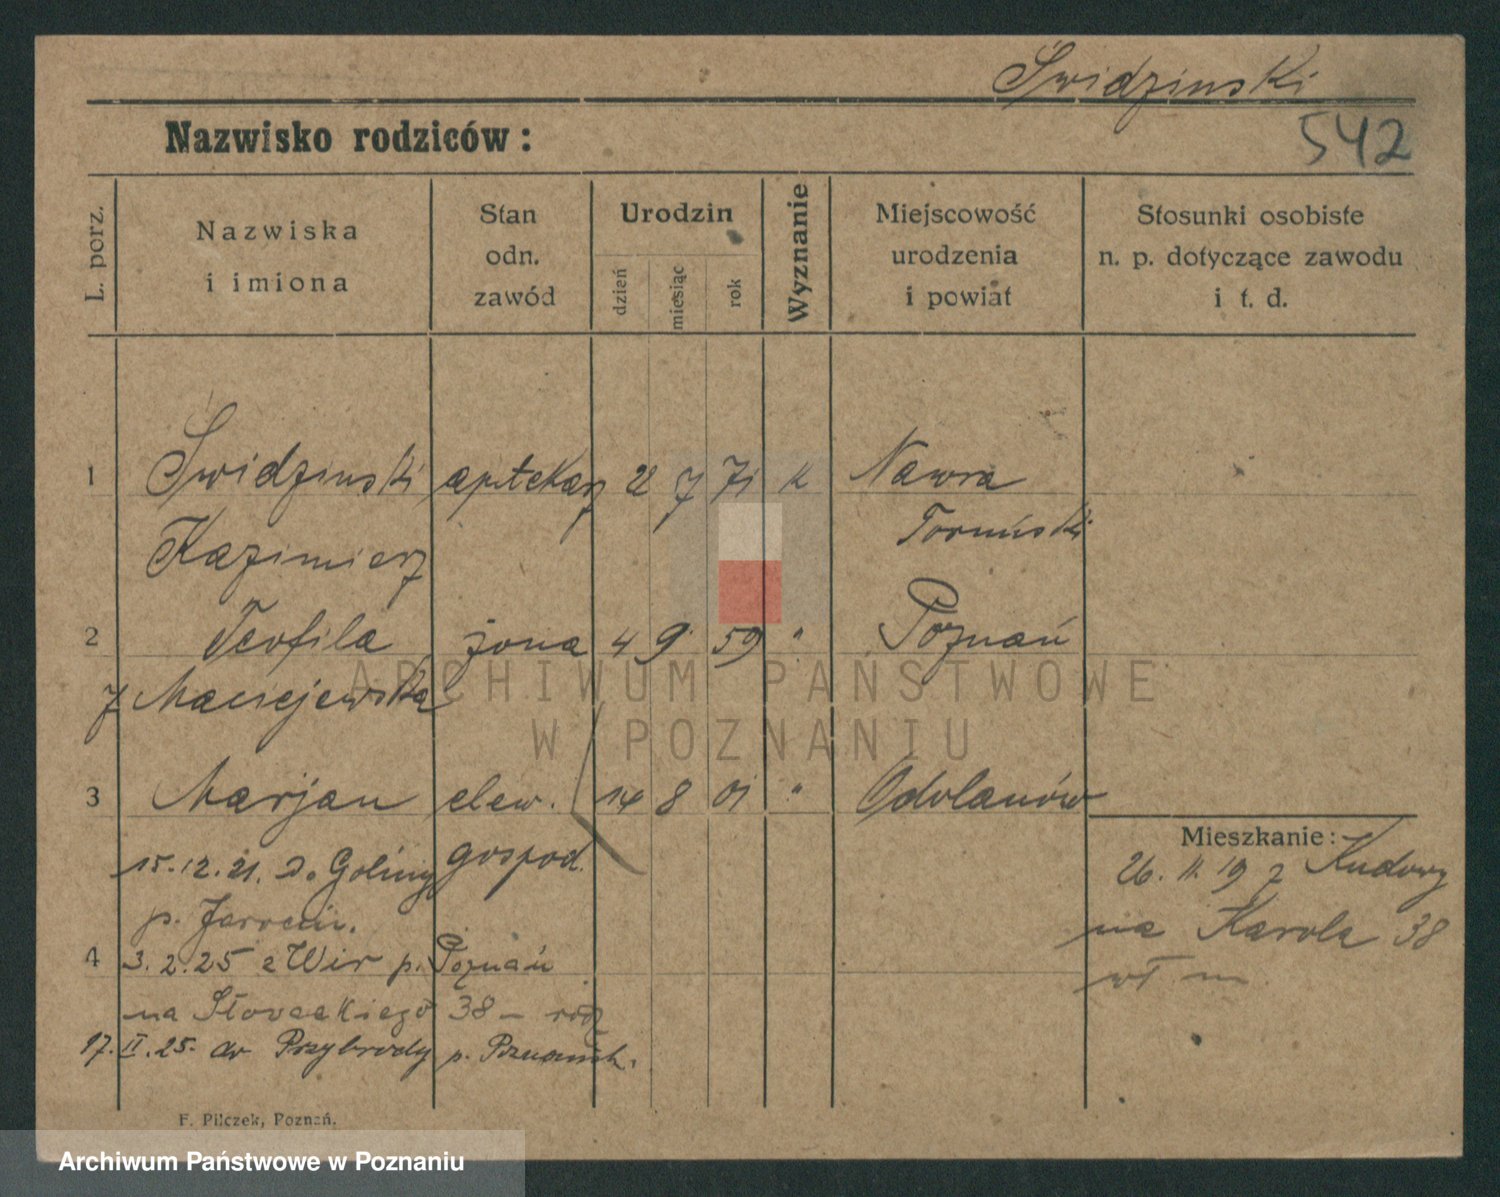 Swidzinski
Nazwisko rodziców:
542
L. porz.
Nazwiska
i imiona
Stan
odn.
zawód
Urodzin
dzień
miesiąc
rok
Wyznanie
Miejscowość
urodzenia
i powiat
Stosunki osobiste
n. p. dotyczące zawodu
i t. d.
1 Swidzinski aptekarz 7 71 k Nawra
Kazimierz Toruński
2 Teofila żona 4 9 59 " Poznań
z Maciejewska
3 Marjan elew. 14 8 01 " Odolanów
gospod.
15.12.21. do Goliny
p. Jarocin.
4 3.2.25 z Wir p. Poznań
na Słowackiego 38 – rodz
17.II.25. do Przybrody p.
Mieszkanie:
26.11.19 z Kudowy
na Karola 38
wł m
F. Pilczek, Poznań.
ARCHIWUM PAŃSTWOWE
W POZNANIU
Archiwum Państwowe w Poznaniu